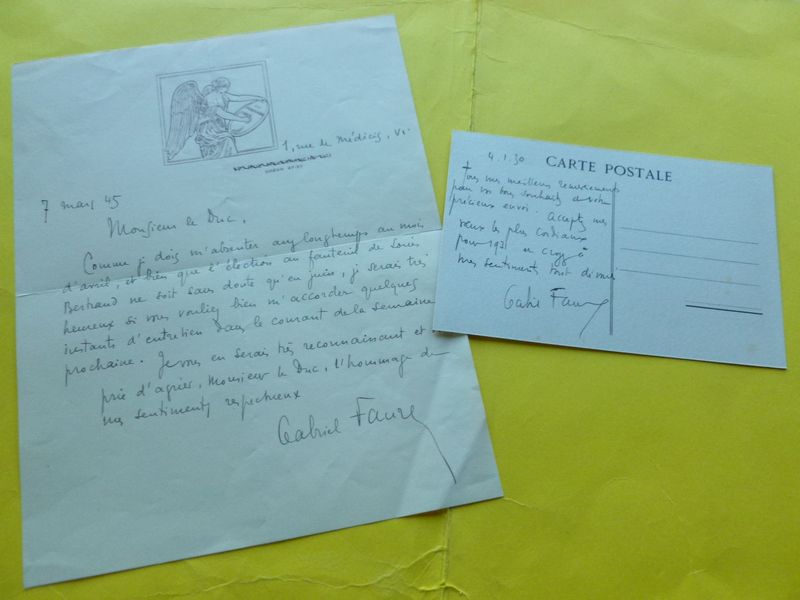 1, rue de Médicis, VIe
7 mars 45
Monsieur le Duc,
Comme je dois m'absenter assez longtemps au mois
d'avril, et bien que l'élection au fauteuil de Louis
Bertrand ne soit sans doute qu'en juin, je serais très
heureux si vous vouliez bien m'accorder quelques
instants d'entretien dans le courant de la semaine
prochaine. Je vous en serais très reconnaissant et
prie d'agréer, Monsieur le Duc, l'hommage de
mes sentiments respectueux
Gabriel Faure
4.1.30
CARTE POSTALE
Tous mes meilleurs remerciements
pour vos bons souhaits et votre
précieux envoi. Acceptez mes
vœux les plus cordiaux
pour et croyez à
mes sentiments tout dévoués
Gabriel Faure